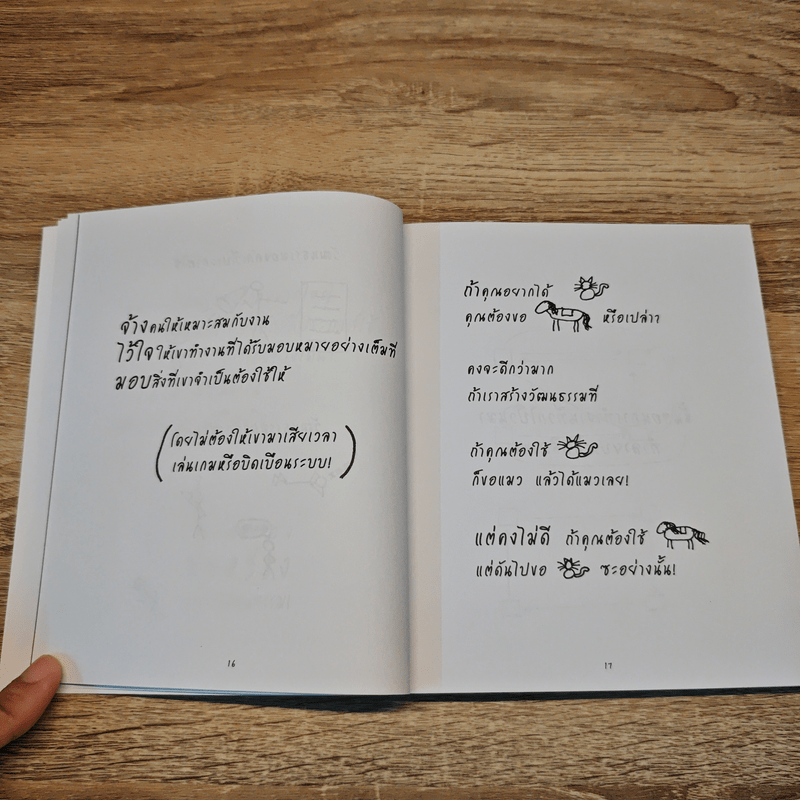 จ้างคนให้เหมาะสมกับงาน
ไว้ใจให้เขาทำงานที่ได้รับมอบหมายอย่างเต็มที่
มอบสิ่งที่เขาจำเป็นต้องใช้ให้
(โดยไม่ต้องให้เขามาเสียเวลา
เล่นเกมหรือบิดเบือนระบบ!)
16
ถ้าคุณอยากได้
คุณต้องขอ หรือเปล่า?
คงจะดีกว่ามาก
ถ้าเราสร้างวัฒนธรรมที่
ถ้าคุณต้องใช้
ก็ขอแมว แล้วได้แมวเลย!
แต่คงไม่ดี ถ้าคุณต้องใช้
แต่ดันไปขอ ซะอย่างนั้น!
17